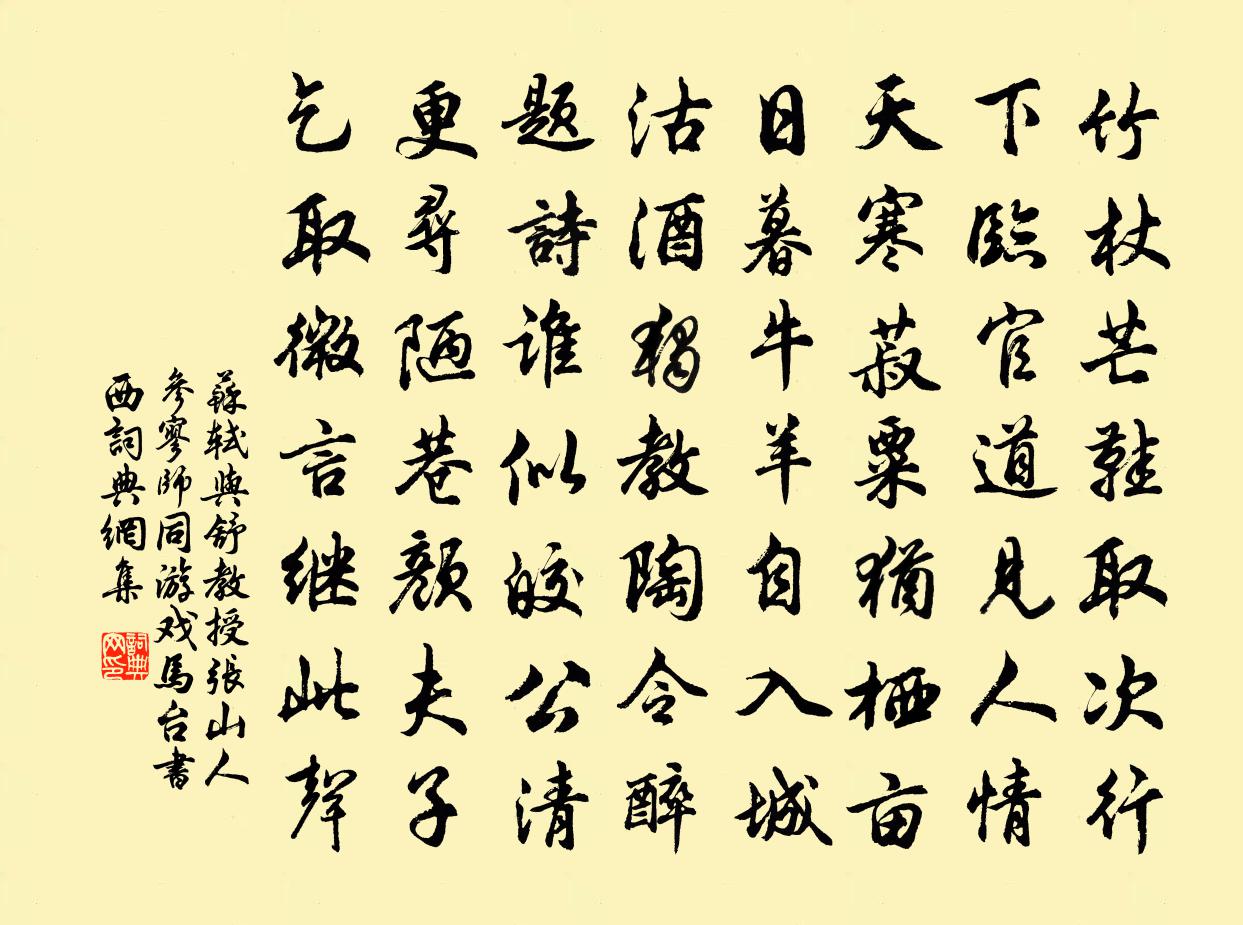 竹杖芒鞋取次行
下臨官道見人情
天寒菽粟猶栖亩
日暮牛羊自入城
沽酒獨教陶令醉
题詩誰似皎公清
更尋陋巷顏夫子
乞取微言继此聲
蘇軾與舒教授張山人
參寥師同游戏馬台書
西詞典網集
詞典网印